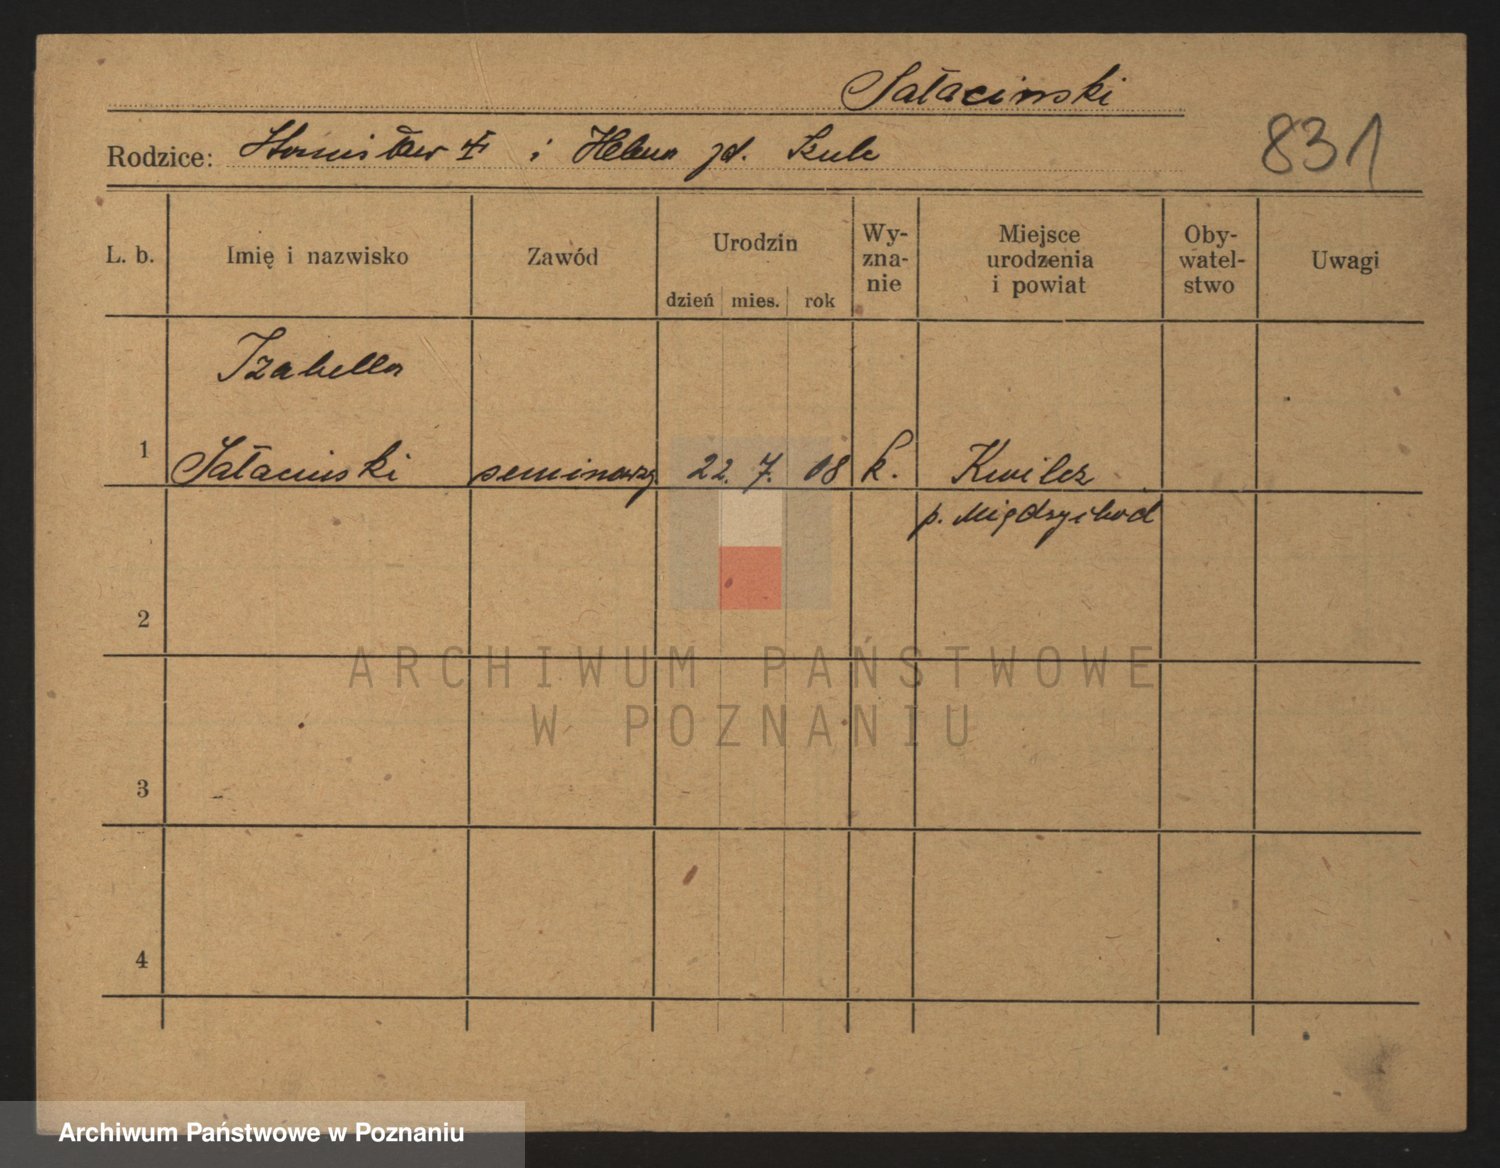 Sałaciński
Rodzice: Stanisław i Helena zd. Szulc
831
L. b. Imię i nazwisko Zawód Urodzin dzień mies. rok Wy-zna-nie Miejsce urodzenia i powiat Oby-watel-stwo Uwagi
Izabella
1 Sałaciński seminarzy 22. 7. 08 k. Kwilcz
p. Międzychod
2
ARCHIWUM PAŃSTWOWE
W POZNANIU
3
4
Archiwum Państwowe w Poznaniu